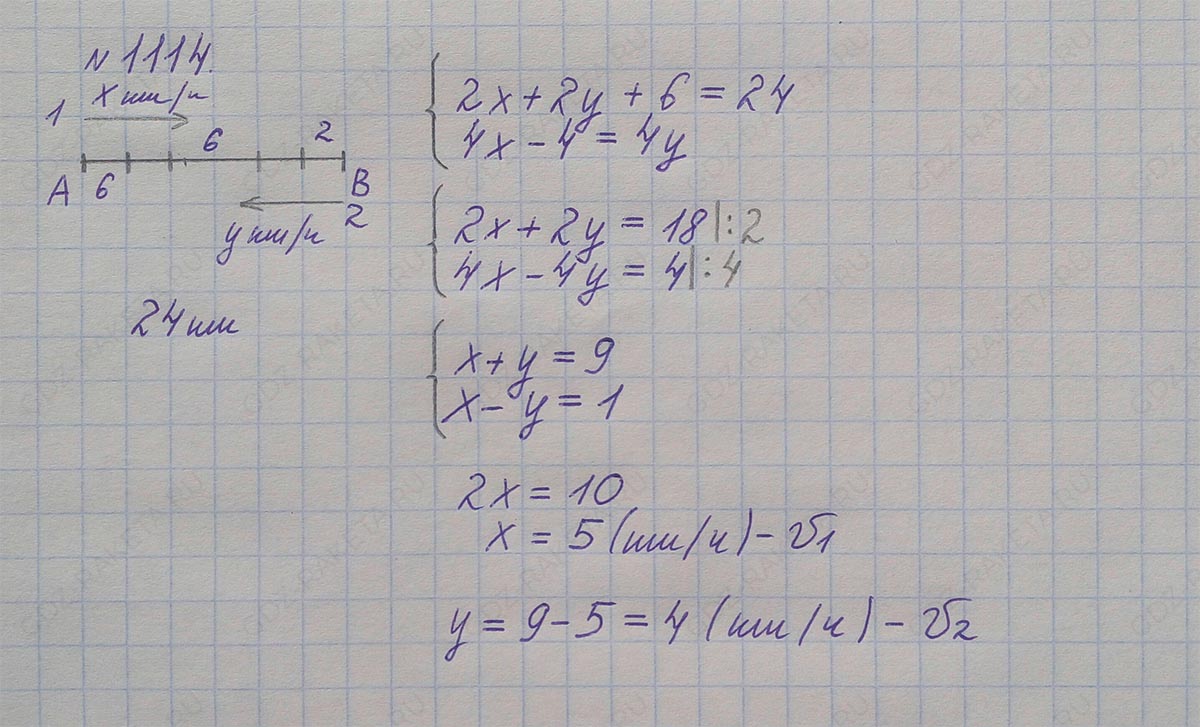 N 1114.
1 x км/ч
6 2
A 6 B
y км/ч 2
24 км
2x + 2y + 6 = 24
4x - 4 = 4y
2x + 2y = 18 |:2
4x - 4y = 4 |:4
x + y = 9
x - y = 1
2x = 10
x = 5 (км/ч) - V1
y = 9 - 5 = 4 (км/ч) - V2
GDZ-RAKETA.RU